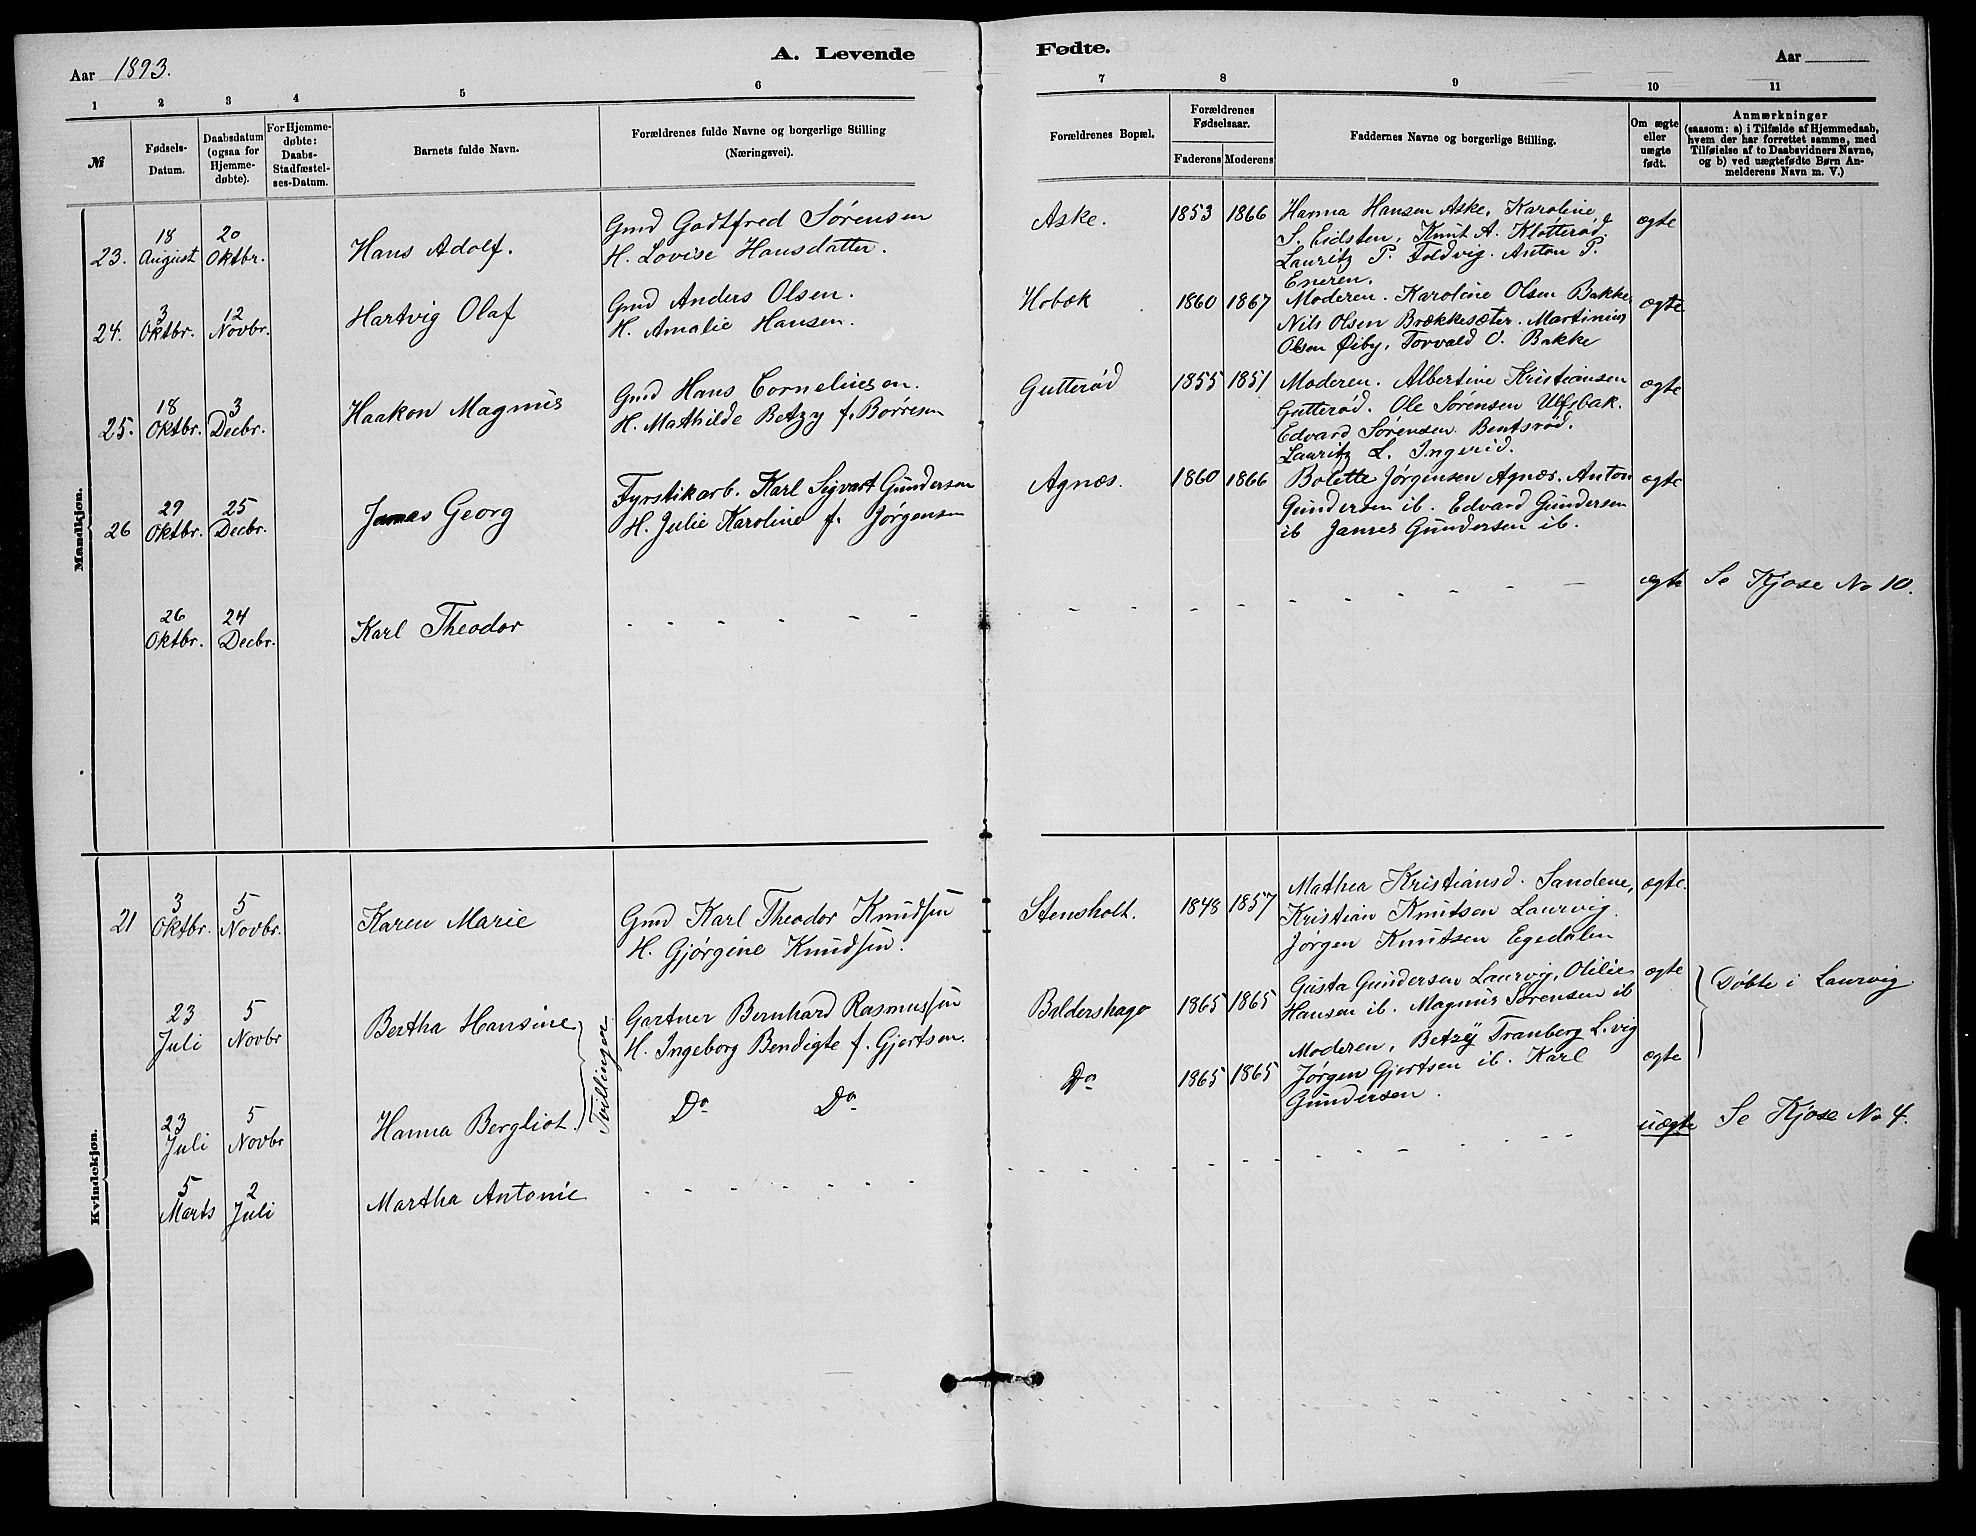 A. Levende
Fødte.
Aar 1893.
Aar
1 2 3 4 5 6 7 8 9 10 11
№
Fødsels-
Datum.
Daabsdatum
(ogsaa for
Hjemme-
døbte).
For Hjemme-
døbte:
Daabs-
Stadfæstel-
ses-Datum.
Barnets fulde Navn.
Forældrenes fulde Navne og borgerlige Stilling
(Næringsvei).
Forældrenes Bopæl.
Forældrenes
Fødselsaar.
Faderens Moderens
Faddernes Navne og borgerlige Stilling.
Om ægte
eller
uægte
født.
Anmærkninger
(saasom: a) i Tilfælde af Hjemmedaab,
hvem der har forrettet samme, med
Tilføielse af to Daabsvidners Navne,
og b) ved uægtefødte Børn An-
melderens Navn m. V.)
Mandkjøn.
23.
18
August
20
Oktbr.
Hans Adolf.
Gmd Godtfred Sørensen
H. Lovise Hansdatter.
Aske.
1853 1866
Hanna Hansen Aske, Karoline
S. Eidsten, Knut A. Kløtterød.
Lauritz P. Foldvig. Anton P.
Eneren.
ægte
24.
3
Oktbr.
12
Novbr.
Hartvig Olaf
Gmd Anders Olsen.
H. Amalie Hansen.
Hobæk
1860 1867
Moderen. Karoline Olsen Bakke
Nils Olsen Brækkesæter. Martinius
Olsen Øiby, Torvald O. Bakke
ægte
25.
18
Oktbr.
3
Decbr.
Haakon Magnus
Gmd Hans Corneliusen.
H. Mathilde Betzy f. Børresen
Gutterød
1855 1851
Moderen. Albertine Kristiansen
Gutterød. Ole Sørensen Ulfsbak.
Edvard Sørensen Bentsrød.
Lauritz L. Ingvrid.
ægte
26
29
Oktbr.
25
Decbr.
Jonas Georg
Fyrstikarb. Karl Sigvart Gundersen
H. Julie Karoline f. Jørgensen
Agnæs.
1860 1866
Bolette Jørgensen Agnæs. Anton
Gundersen ib. Edvard Gundersen
ib Janses Gundersen ib.
ægte
26
Oktbr.
24
Decbr.
Karl Theodor
- - - - - -
ægte
Se Kjose No 10.
Kvindekjøn.
21
3
Oktbr.
5
Novbr.
Karen Marie
Gmd Karl Theodor Knudsen
H. Gjørgine Knudsen.
Stensholt.
1848 1857
Mathea Kristiansd. Sandene,
Kristian Knutsen Laurvig.
Jørgen Knutsen Egedalen
ægte.
23
Juli
5
Novbr
Bertha Hansine
Tvillinger
Gartner Bernhard Rasmussen
H. Ingeborg Bendigte f. Gjertsen.
Baldershage
1865 1865
Gusta Gundersen Laurvig, Otilie
Hansen ib. Magnus Sørensen ib
ægte
Døbte i Laurvig
23
Juli
5
Novbr
Hanna Bergliot.
Do Do
Do
1865 1865
Moderen, Betzy Tranberg L.vig
Jørgen Gjertsen ib. Karl
Gundersen.
ægte
5
Marts
2
Juli
Martha Antonie
- - - - - - -
uægte
Se Kjose No 4.